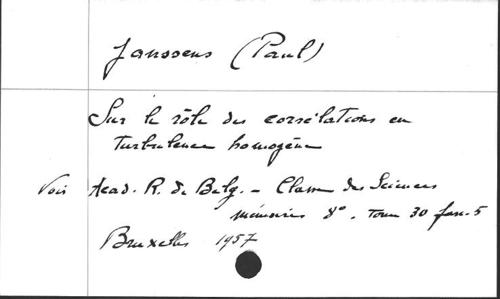 Janssens (Paul)
Sur le rôle des corrélations en
turbulence homogène
Voir Acad. R. de Belg. - Classe des Sciences
mémoires 8°. Tome 30 fasc. 5
Bruxelles 1957